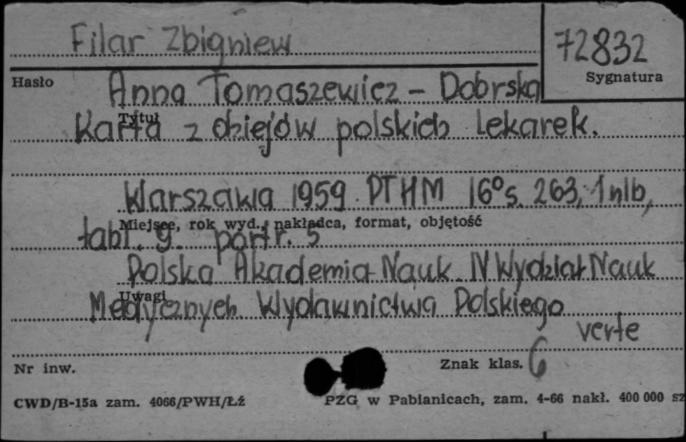 Filar Zbigniew
72832
Hasło
Sygnatura
Anna Tomaszewicz - Dobrska
Tytuł
Karta z dziejów polskich lekarek.
Warszawa 1959 PTHM 16° s. 263, 1 nlb,
Miejsce, rok wyd., nakładca, format, objętość
tabl. 9. portr. 5
Polska Akademia Nauk IV Wydział Nauk
Uwagi
Medycznych Wydawnictwa Polskiego
verte
Nr inw.
Znak klas. 6
CWD/B-15a zam. 4066/PWH/Łź
PZG w Pabianicach, zam. 4-66 nakł. 400 000 sz